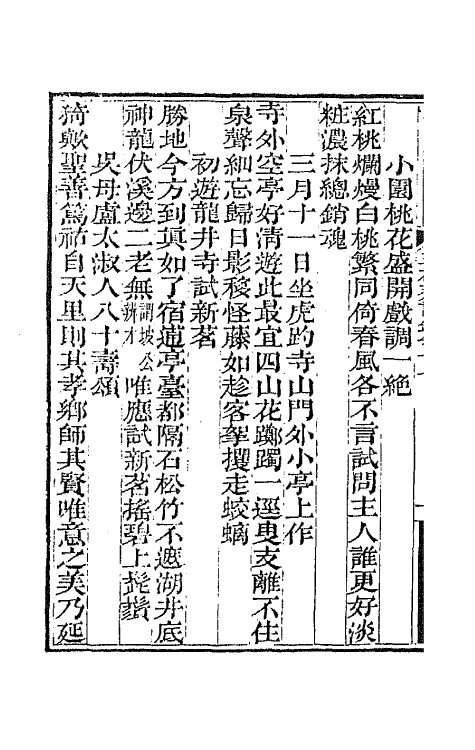 小園桃花盛開戲調一絕
紅桃爛熳白桃繁同倚春風各不言試問主人誰更好淡
粧濃抹總銷魂
三月十一日坐虎跑寺山門外小亭上作
寺外空亭好清遊此最宜四山花躑躅一逕曳支離不住
泉聲細忘歸日影移怪藤如趁客拏攫走蛟螭
初遊龍井寺試新茗
勝地今方到真如了宿逋亭臺都隔石松竹不遮湖井底
神龍伏溪邊二老無謂坡公辨才唯應試新茗搖碧上髭鬚
吳母盧太淑人八十壽頌
猗歟聖善篤祜自天里則其孝鄉師其賢唯意之美乃延